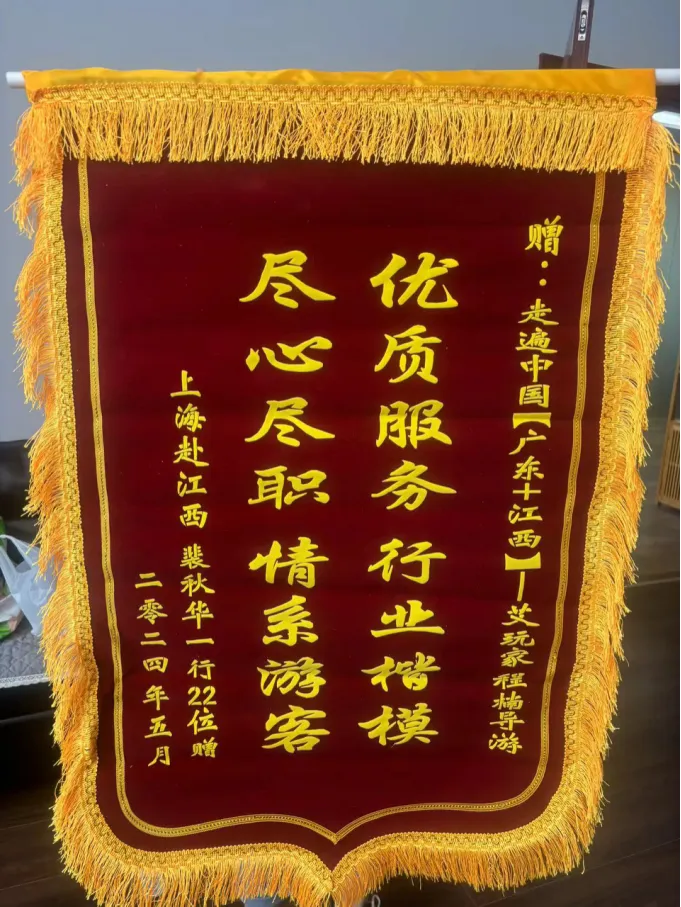 赠:走遍中国【广东+江西】—艾玩家程楠导游
优质服务 行业楷模
尽心尽职 情系游客
上海赴江西 裴秋华一行22位赠
二零二四年五月